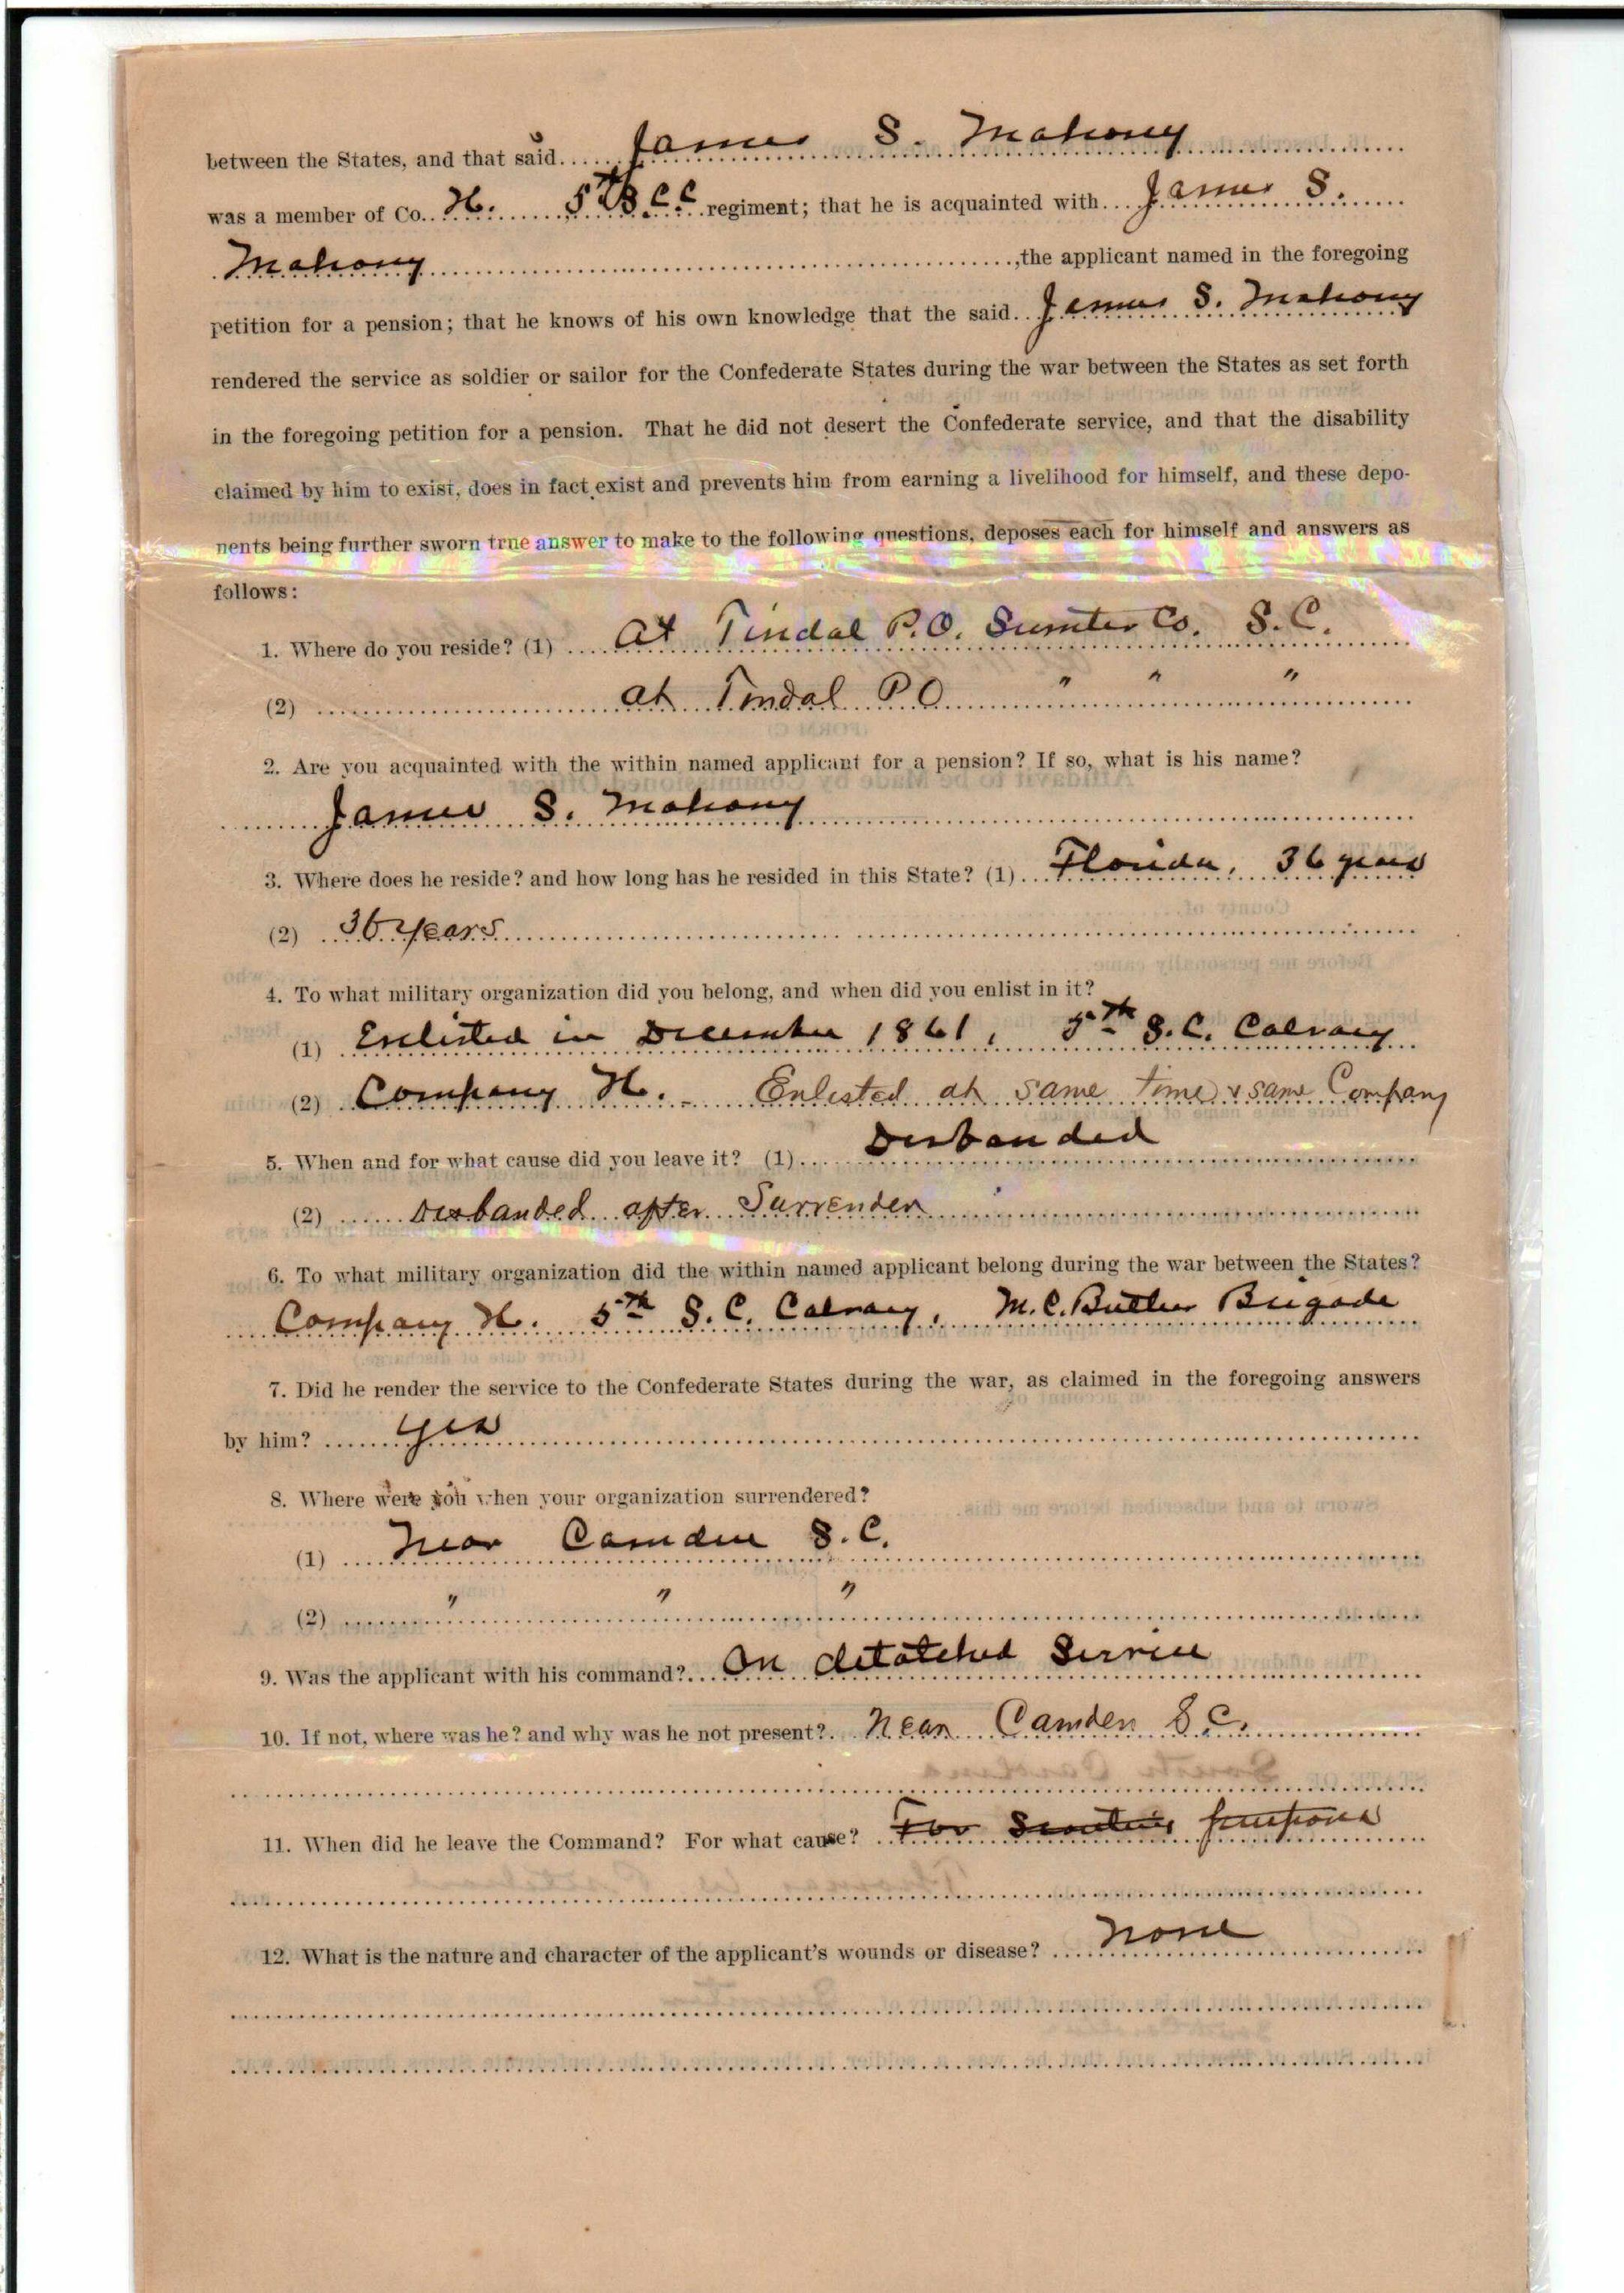 between the States, and that said James S. Mahony
was a member of Co. H. 5th S.C.C. regiment; that he is acquainted with James S.
Mahony, the applicant named in the foregoing
petition for a pension; that he knows of his own knowledge that the said James S. Mahony
rendered the service as soldier or sailor for the Confederate States during the war between the States as set forth
in the foregoing petition for a pension. That he did not desert the Confederate service, and that the disability
claimed by him to exist, does in fact exist and prevents him from earning a livelihood for himself, and these depo-
nents being further sworn trne answer to make to the following questions, deposes each for himself and answers as
follows:
1. Where do you reside? (1) At Tindal P.O. Sumter Co. S.C.
(2) at Tindal P.O " " "
2. Are you acquainted with the within named applicant for a pension? If so, what is his name?
James S. Mahony
3. Where does he reside? and how long has he resided in this State? (1) Florida, 36 years
(2) 36 years
4. To what military organization did you belong, and when did you enlist in it?
(1) Enlisted in December 1861, 5th S.C. Calvary
(2) Company H. Enlisted at same time & same Company
5. When and for what cause did you leave it? (1) Disbanded
(2) Disbanded after Surrender
6. To what military organization did the within named applicant belong during the war between the States?
Company H. 5th S.C. Calvary, M.C. Butler Brigade
7. Did he render the service to the Confederate States during the war, as claimed in the foregoing answers
by him? Yes
8. Where were you when your organization surrendered?
(1) Near Camden S.C.
(2) " " "
9. Was the applicant with his command? On detatched Service
10. If not, where was he? and why was he not present? Near Camden S.C.
11. When did he leave the Command? For what cause? For Scouting purposes
12. What is the nature and character of the applicant's wounds or disease? None